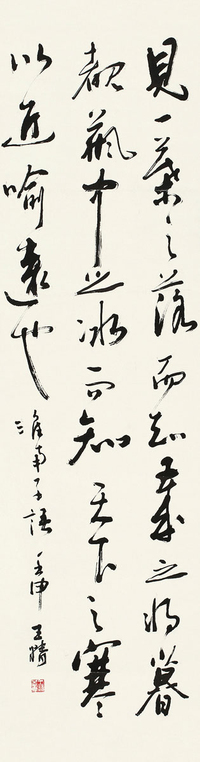 見一葉之落而知歲之將暮
覩瓶中之冰而知天下之寒
以近喻遠也
淮南子語 壬申 王